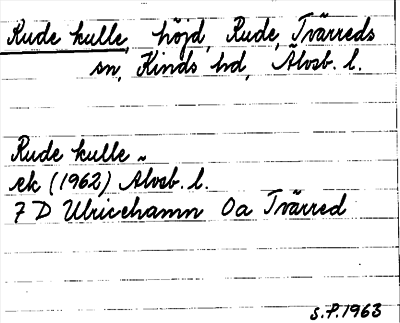 Rude kulle, höjd, Rude, Tvärreds
sn, Kinds hd, Älvsb. l.
Rude kulle
ek (1962) Älvsb. l.
7 D Ulricehamn 0a Tvärred
S.P. 1963